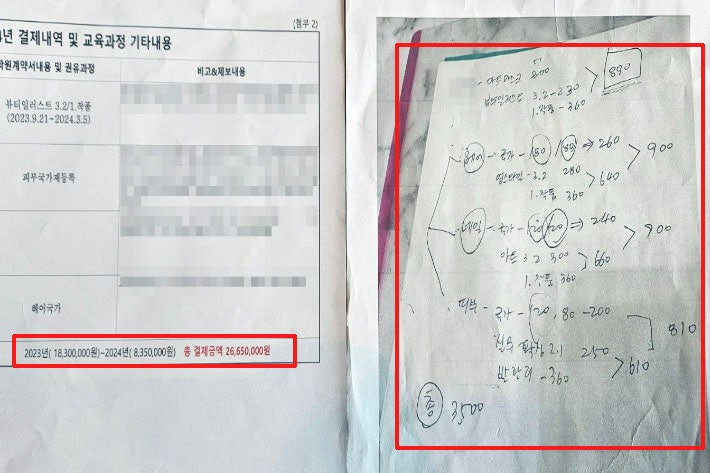 (첨부 2)
년 결제내역 및 교육과정 기타내용
학원계약서내용 및 권유과정
비고&제보내용
뷰티일러스트 3.2/1.작품
(2023.9.21~2024.3.5)
피부국가제등록
헤어국가
2023년( 18,300,000원)~2024년( 8,350,000원) 총 결제금액 26,650,000원
300
890
뷰티일러스트 3.2-230
1.작품-360
헤어 - 국가 - 180 / 80 ⇒ 260
900
업스타일 - 3.2 280
640
1.작품 360
네일 - 국가 - 120 120 ⇒ 240
900
아트 3.2 300
660
1.작품 360
피부 - 국가 - 120, 80 - 200
810
2.1 250
610
반관리 - 360
총 3500